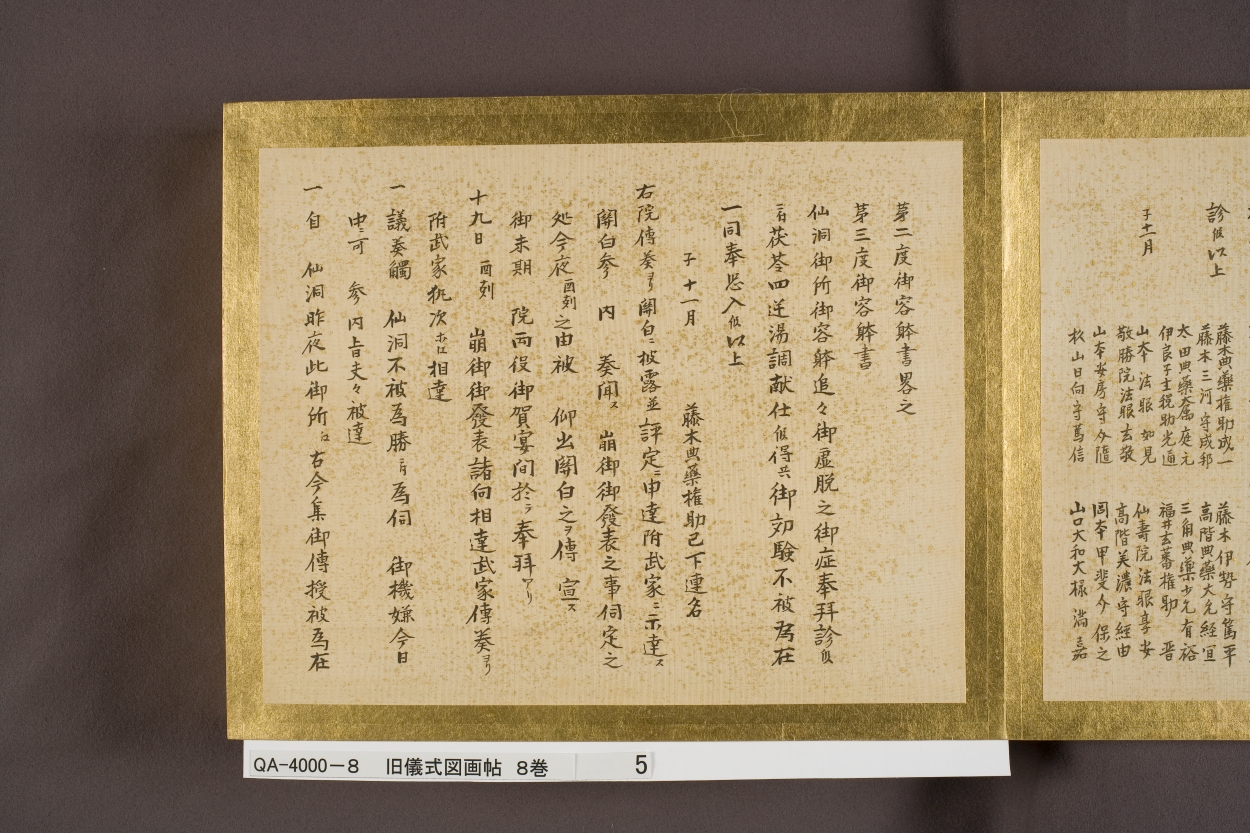 診候以上
子十一月
藤木典藥権助成一
藤木三河守成邦
太田典藥大属庭元
伊良子主税助光通
山本法眼如見
敬勝院法眼玄敬
山本安房守分随
杦山日向守篤信
藤木伊勢守篤平
高階典藥大允経宣
三角典藥少允有裕
福井玄蕃権助 晋
仙壽院法眼享安
高階美濃守経由
岡本甲斐介保之
山口大和大椽 満嘉
第二度御容躰書畧之
第三度御容躰書
仙洞御所御容躰追々御虚脱之御症奉拝診候
ニ付茯苓四逆湯調献仕候得共御効驗不被為在
一同奉恐入候以上
子十一月
藤木典藥権助已下連名
右院傳奏ヨリ関白ニ披露並評定ニ申達附武家ニ示達ス
関白参 内 奏聞ス 崩御御發表之事伺定之
処今夜酉刻之由被 仰出関白之ヲ傳 宣ス
御末期 院両役御賀宴間於テ奉拝アリ
十九日 酉刻 崩御御發表諸向相達武家傳奏ヨリ
附武家執次ホニ相達
一 議奏觸 仙洞不被為勝ニ付為伺 御機嫌今日
中ニ可 参 内旨夫々被達
一 自 仙洞昨夜此御所ニ古今集御傳授被為在
QA-4000-8 旧儀式図画帖 8巻 5